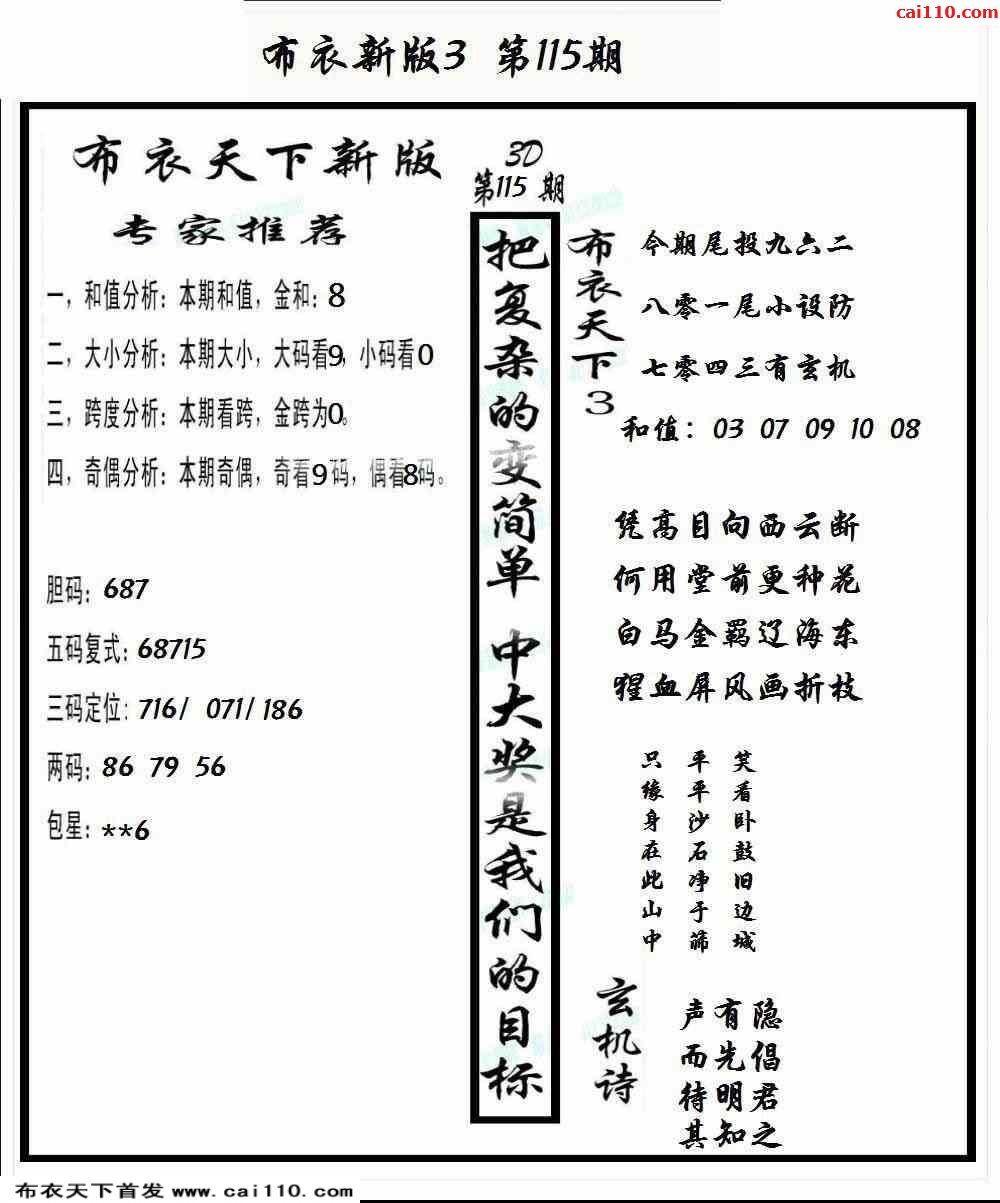 cai110.com
布衣新版3 第115期
布衣天下新版
专家推荐
一，和值分析：本期和值，金和：8
二，大小分析：本期大小，大码看9，小码看0
三，跨度分析：本期看跨，金跨为0。
四，奇偶分析：本期奇偶，奇看9码，偶看8码。
胆码：687
五码复式：68715
三码定位：716/ 071/186
两码：86 79 56
包星：**6
3D
第115 期
把复杂的变简单 中大奖是我们的目标
布衣天下3
今期尾投九六二
八零一尾小设防
七零四三有玄机
和值： 03 07 09 10 08
凭高目向西云断
何用堂前更种花
白马金羁辽海东
猩血屏风画折枝
笑看卧鼓旧边城
平平沙石净于筛
只缘身在此山中
玄机诗
声有隐
而先倡
待明君
其知之
布衣天下首发 www.cai110.com